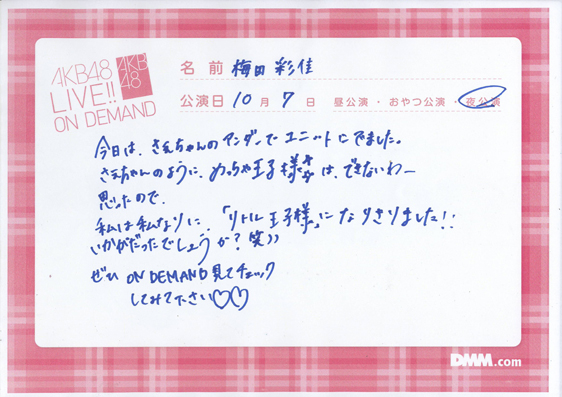 AKB48
LIVE!!
ON DEMAND
AKB
48
名 前 梅田 彩佳
公演日 10 月 7 日 昼公演 ・ おやつ公演 ・ 夜公演
今日は、さえちゃんのアンダーでユニットにでました。
さえちゃんのように、めっちゃ王子様キャラは、できないわー
思ったので、
私は私なりに、「リトル王子様」になりきりました!!
いかがだったでしょうか?笑))
ぜひ ON DEMAND 見てチェック
してみて下さい♡♡
DMM.com